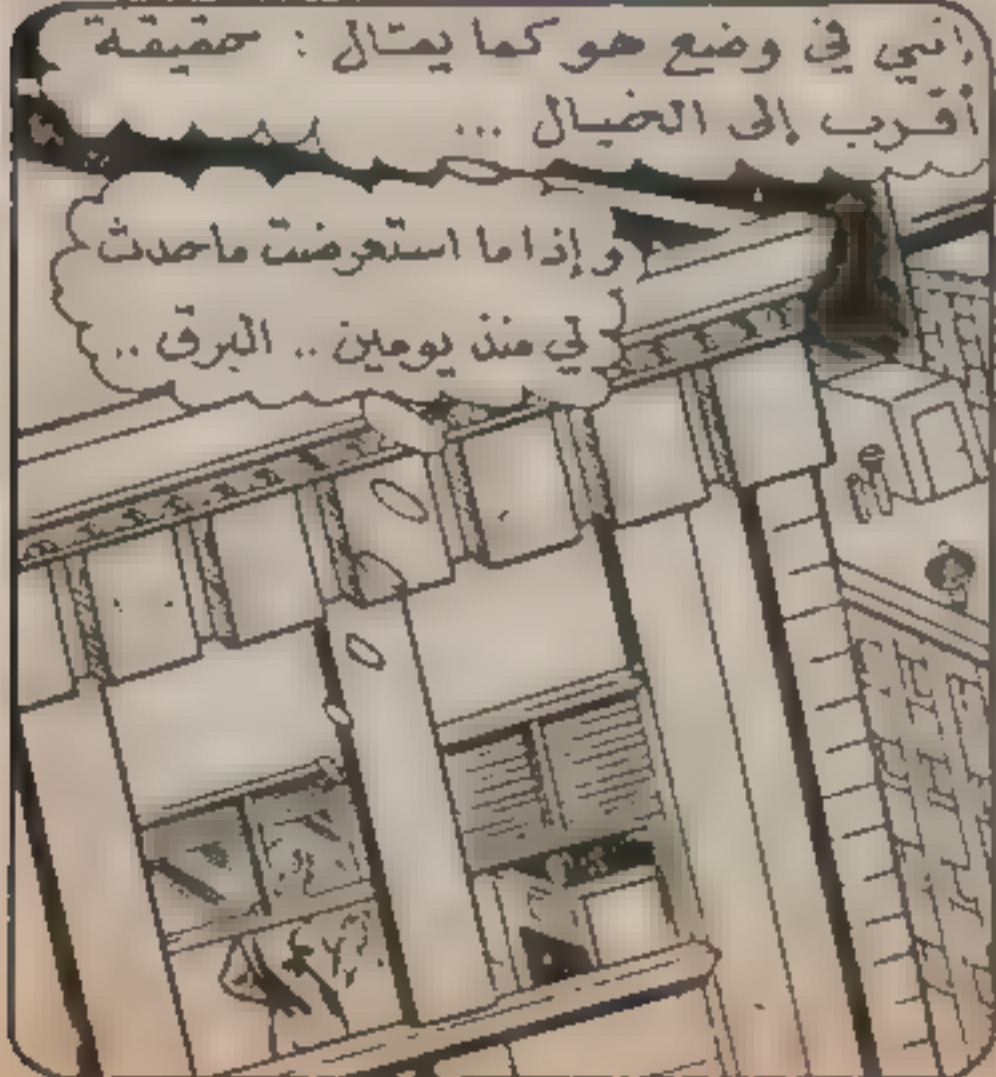 إنني في وضع هو كما يقال : حقيقة
أقرب إلى الخيال ...
وإذا ما استعرضت ماحدث
لي منذ يومين .. البرق ..